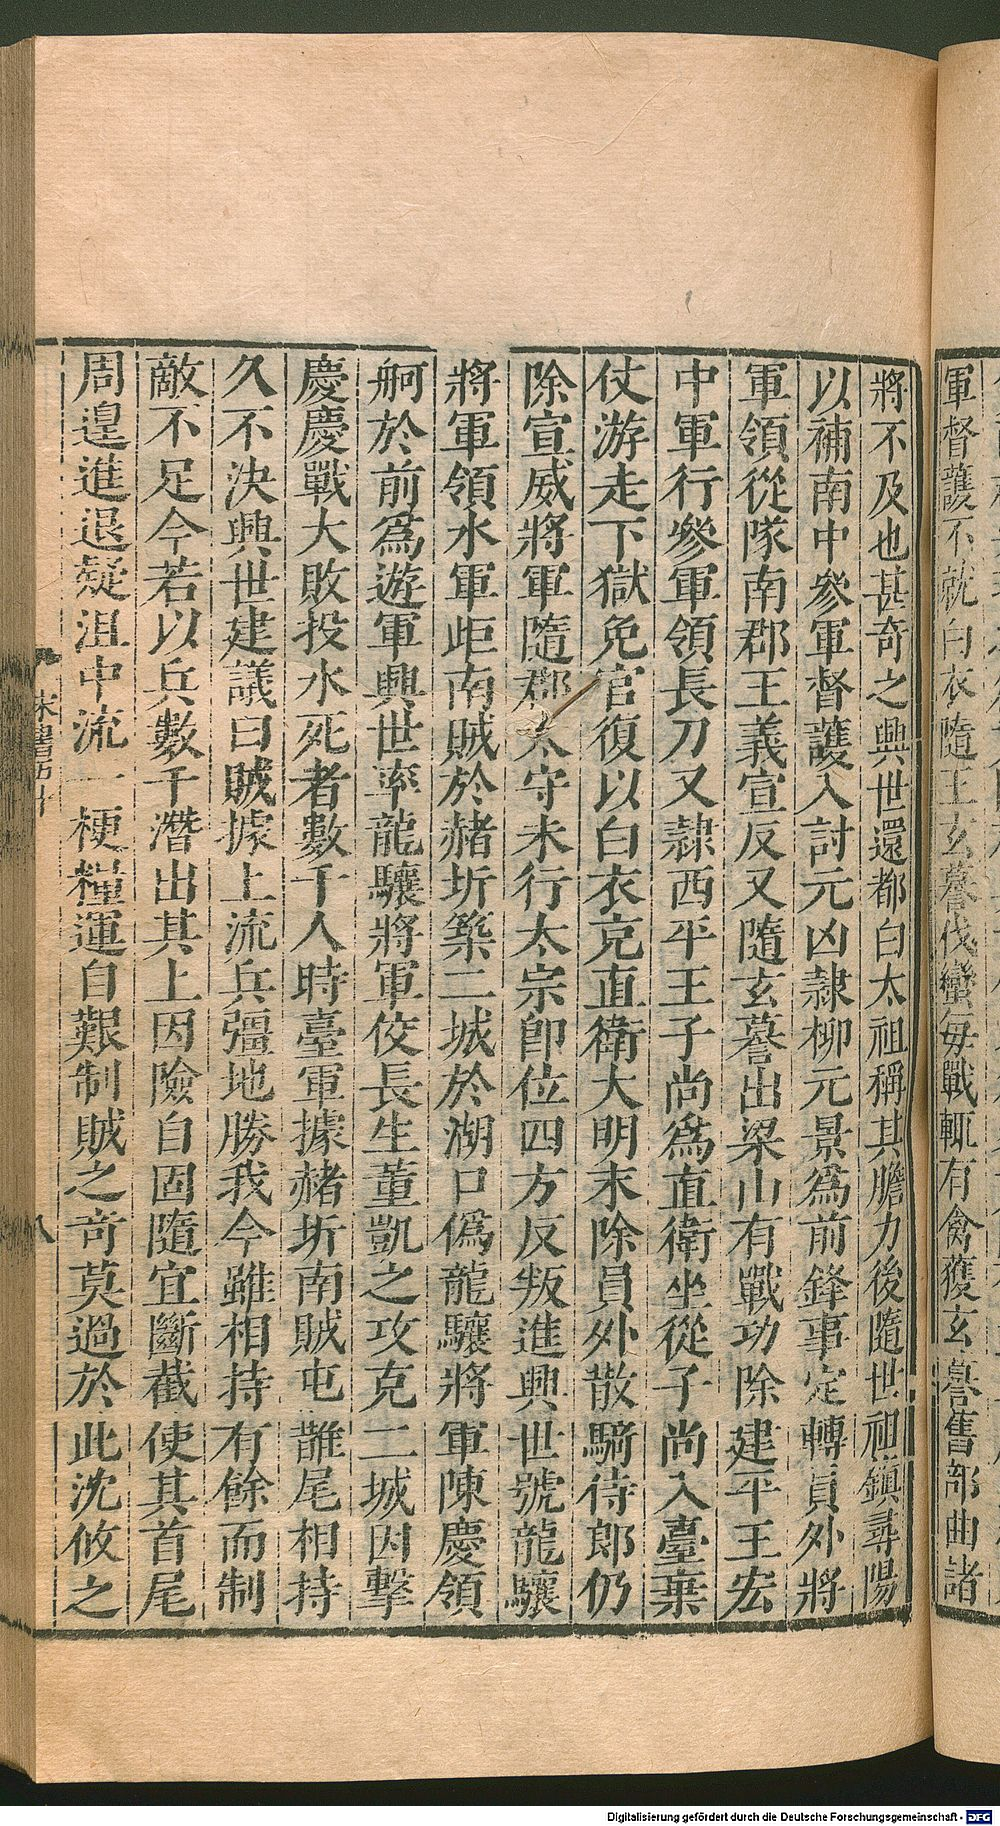 軍督護不就白衣隨王玄謩伐蠻每戰輒有禽獲玄謩舊部曲諸
將不及也甚奇之興世還都白太祖稱其膽力後隨世祖鎮尋陽
以補南中參軍督護入討元凶隸柳元景爲前鋒事定轉員外將
軍領從隊南郡王義宣反又隨玄謩出梁山有戰功除建平王宏
中軍行參軍領長刀又隸西平王子尚爲直衛坐從子尚入臺棄
仗游走下獄免官復以白衣克直衛大明末除員外散騎侍郎仍
除宣威將軍隨郡太守未行太宗卽位四方反叛進興世號龍驤
將軍領水軍歫南賊於赭圻築二城於湖口僞龍驤將軍陳慶領
舸於前爲遊軍興世率龍驤將軍佼長生董凱之攻克二城因擊
慶慶戰大敗投水死者數千人時臺軍據赭圻南賊屯鵲尾相持
久不決興世建議曰賊據上流兵彊地勝我今雖相持有餘而制
敵不足今若以兵數千潛出其上因險自固隨宜斷截使其首尾
周遑進退疑沮中流一梗糧運自艱制賊之奇莫過於此沈攸之
宋書五十
八
Digitalisierung gefördert durch die Deutsche Forschungsgemeinschaft - DFG